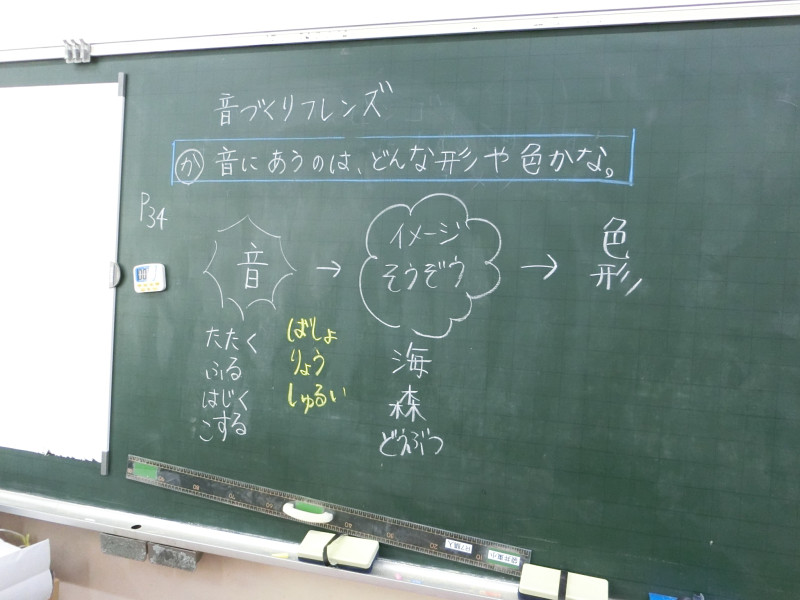 音づくりフレンズ
か 音にあうのは、どんな形や色かな。
P34
音 → イメージ そうぞう → 色 形
たたく
ふる
はじく
こする
ばしょ
りょう
しゅるい
海
森
どうぶつ